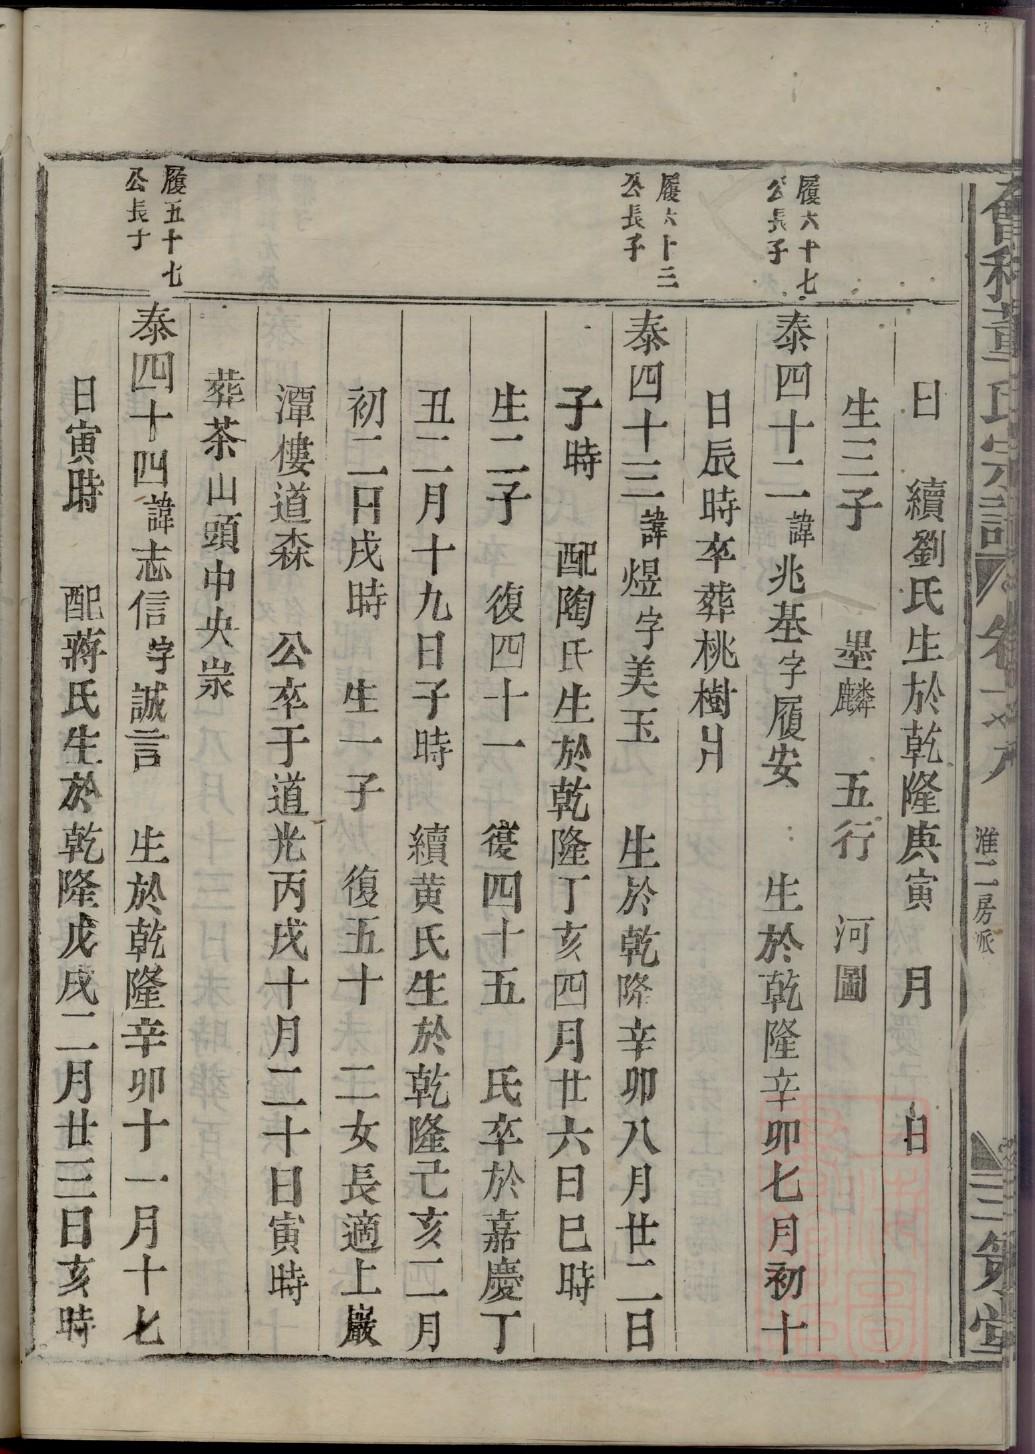 董氏宗譜
淮二房派
三策堂
日 續劉氏生於乾隆庚寅 月 日
生三子 墨麟 五行 河圖
履六十七
公長子
泰四十二諱兆基字履安 生於乾隆辛卯七月初十
日辰時卒葬桃樹爿
履六十三
公長子
泰四十三諱煜字美玉 生於乾隆辛卯八月廿二日
子時 配陶氏生於乾隆丁亥四月廿六日巳時
生二子 復四十一 復四十五 氏卒於嘉慶丁
丑二月十九日子時 續黄氏生於乾隆己亥二月
初二日戌時 生一子 復五十 二女長適上嚴
潭樓道森 公卒于道光丙戌十月二十日寅時
葬茶山頭中央崇
履五十七
公長子
泰四十四諱志信字誠言 生於乾隆辛卯十一月十七
日寅時 配蔣氏生於乾隆戊戌二月廿三日亥時